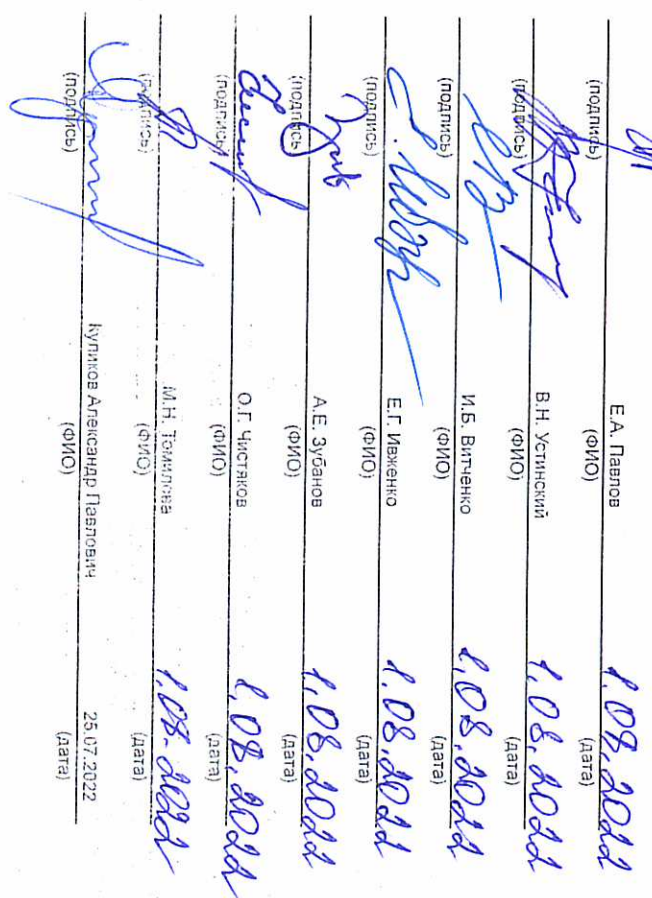 Е.А. Павлов 1.08.2022
(подпись) (ФИО) (дата)
В.Н. Устинский 1.08.2022
(подпись) (ФИО) (дата)
И.Б. Витченко 1.08.2022
(подпись) (ФИО) (дата)
Е.Г. Ивженко 1.08.2022
(подпись) (ФИО) (дата)
А.Е. Зубанов 1.08.2022
(подпись) (ФИО) (дата)
О.Г. Чистяков 1.08.2022
(подпись) (ФИО) (дата)
М.Н. Томилова 1.08.2022
(подпись) (ФИО) (дата)
Куликов Александр Павлович 25.07.2022
(подпись) (ФИО) (дата)